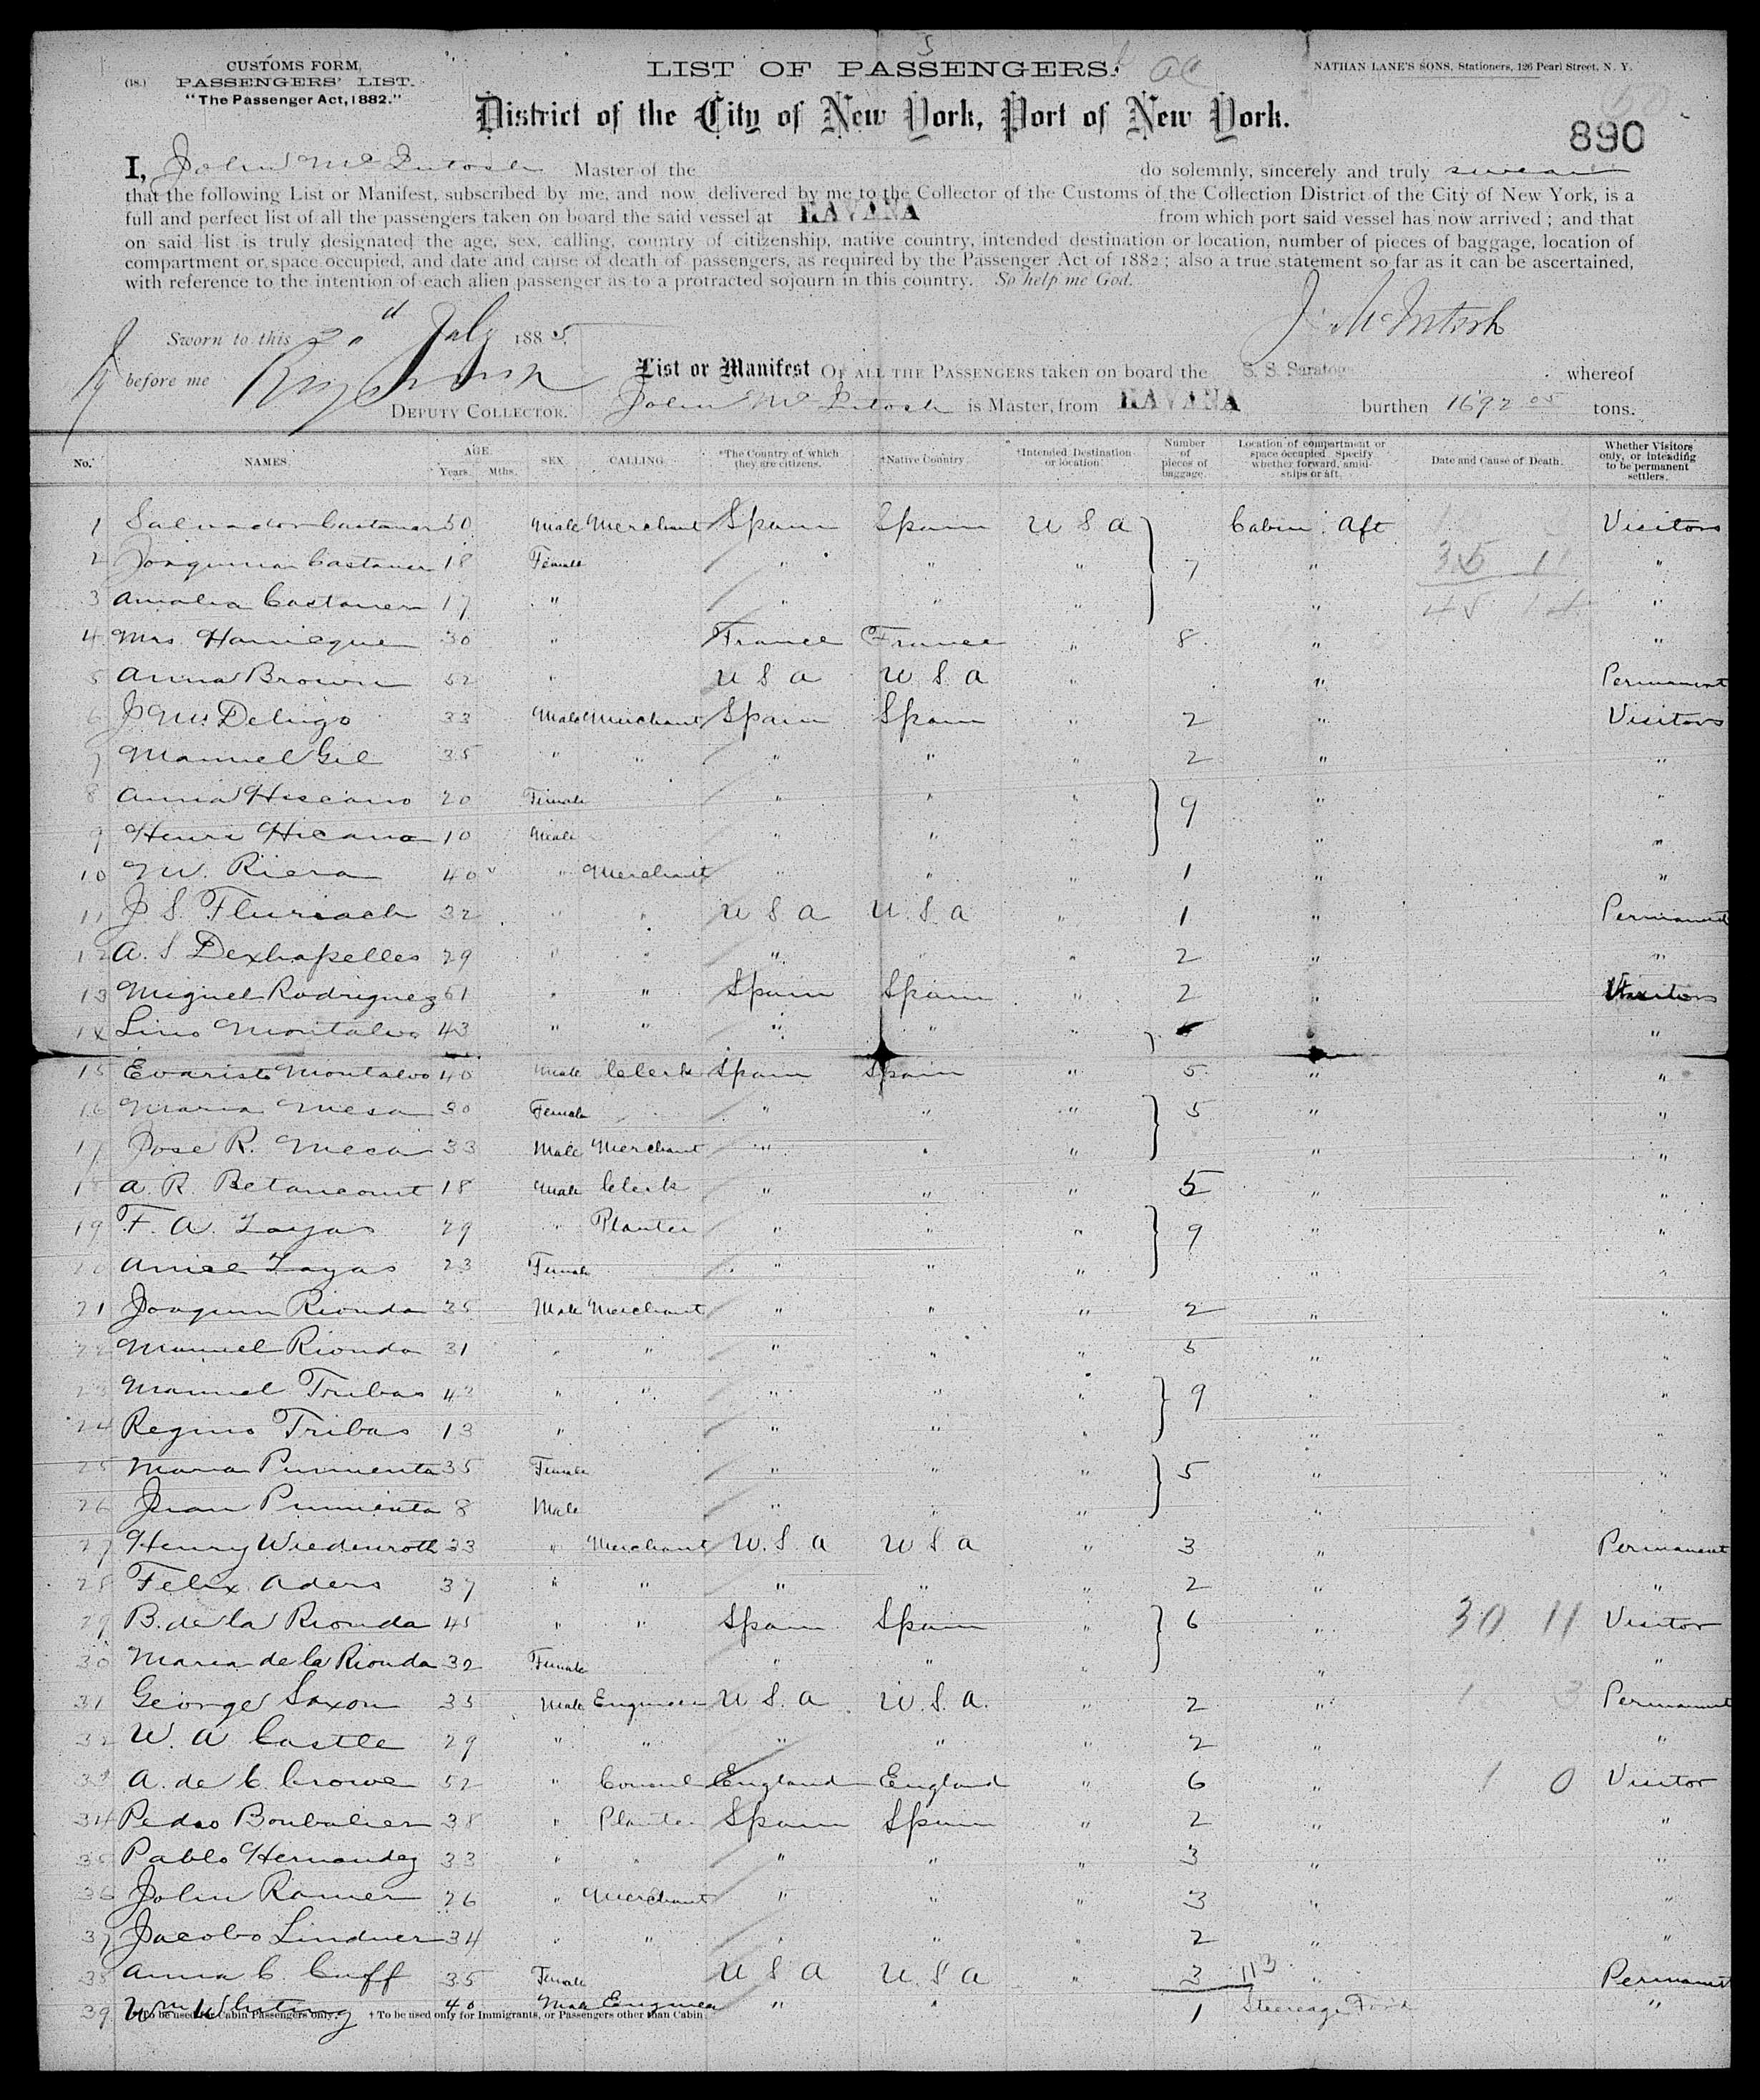 CUSTOMS FORM,
(18.) PASSENGERS' LIST.
"The Passenger Act, 1882."
LIST OF PASSENGERS.
NATHAN LANE'S SONS, Stationers, 126 Pearl Street, N. Y.
District of the City of New York, Port of New York.
890
I, John McIntosh Master of the do solemnly, sincerely and truly swear
that the following List or Manifest, subscribed by me, and now delivered by me to the Collector of the Customs of the Collection District of the City of New York, is a
full and perfect list of all the passengers taken on board the said vessel at HAVANA from which port said vessel has now arrived; and that
on said list is truly designated the age, sex, calling, country of citizenship, native country, intended destination or location, number of pieces of baggage, location of
compartment or space occupied, and date and cause of death of passengers, as required by the Passenger Act of 1882; also a true statement so far as it can be ascertained,
with reference to the intention of each alien passenger as to a protracted sojourn in this country. So help me God.
J. McIntosh
Sworn to this 20" July 1885,
before me
DEPUTY COLLECTOR.
List or Manifest OF ALL THE PASSENGERS taken on board the S. S. Saratoga whereof
John McIntosh is Master, from HAVANA burthen 1692 05 tons.
No. NAMES. AGE. Years. Mths. SEX. CALLING. *The Country of which they are citizens. †Native Country †Intended Destination or location. Number of pieces of baggage. Location of compartment or space occupied. Specify whether forward, amidships or aft. Date and Cause of Death. Whether Visitors only, or intending to be permanent settlers.
1 Salvador Castaner 50 Male Merchant Spain Spain U S A Cabin Aft Visitors
2 Joaquina Castaner 18 Female " " " 7 " 35 11 "
3 Amalia Castaner 17 " " " " " 45 14 "
4 Mrs. 30 " France France " 8 " "
5 Anna Brown 52 " U S A U S A " " Permanent
6 33 Male Merchant Spain Spain " 2 " Visitors
7 Manuel Gil 35 " " " " " 2 " "
8 Anna Hiscano 20 Female " " " 9 " "
9 Henri Hicano 10 Male " " " " "
10 Riera 40 " Merchant " " " 1 " "
11 J S. 32 " " U S A U. S. A " 1 " Permanent
12 A. S Dexhapelles 29 " " " " " 2 " "
13 Miguel Rodriguez 61 " " Spain Spain " 2 " Visitors
14 Lino Montalvo 43 " " " " " "
15 Evaristo Montalvo 40 Male Clerk Spain Spain " 5 " "
16 Maria Mesa 30 Female " " " 5 " "
17 Jose R. Mesa 33 Male Merchant " " " " "
18 A. R. Betancourt 18 Male Clerk " " " 5 " "
19 F. A. Zayas 29 " Planter " " " 9 " "
20 Zayas 23 Female " " " " "
21 Joaquin Rionda 25 Male Merchant " " " 2 " "
22 Manuel Rionda 31 " " " " " 5 " "
23 Manuel Tribas 43 " " " " " 9 " "
24 Regino Tribas 13 " " " " " "
25 Maria Pimienta 35 Female " " " 5 " "
26 Juan Pimienta 8 Male " " " " "
27 Henry Wiedenroth 33 " Merchant U. S. A U S A " 3 " Permanent
28 Felix Aders 37 " " " " " 2 " "
29 B. de la Rionda 45 " " Spain Spain " 6 " 30 11 Visitor
30 Maria de la Rionda 32 Female " " " " "
31 George Saxon 35 Male Engineer U. S. A U. S. A. " 2 " 3 Permanent
32 W. A Castle 29 " " " " " 2 " "
33 A. de C. Crowe 52 " Consul England England " 6 " 1 0 Visitor
34 Pedro 38 " Planter Spain Spain " 2 " "
35 Pablo Hernandez 33 " " " " " 3 " "
36 John Ramer 26 " Merchant " " " 3 " "
37 Jacobo Lindner 34 " " " " " 2 " "
38 Anna C. Cuff 35 Female U S A U. S A " 3 113 " Permanent
39 Wm Whiting 40 Male Engineer " " 1 Steerage "
*To be used for Cabin Passengers only. † To be used only for Immigrants, or Passengers other than Cabin.